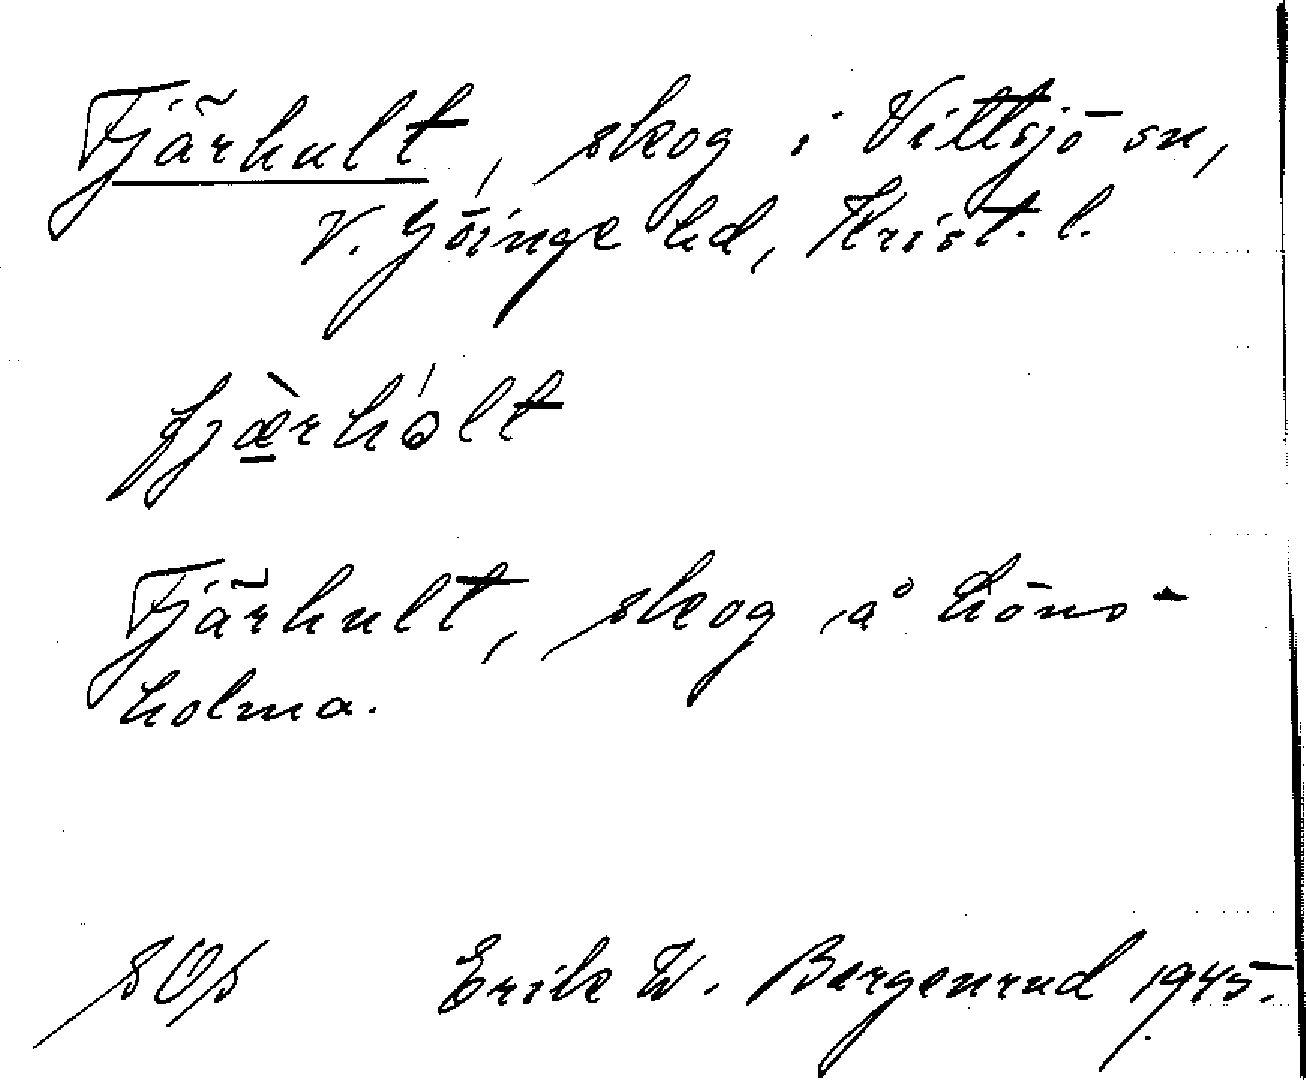 Fjärhult, skog i Vittsjö sn,
V. Göinge hd, Krist. l.
fjæ̲̀rhólt
Fjärhult, skog å höns-
holma.
sOs Erik W. Bergenrud 1945.